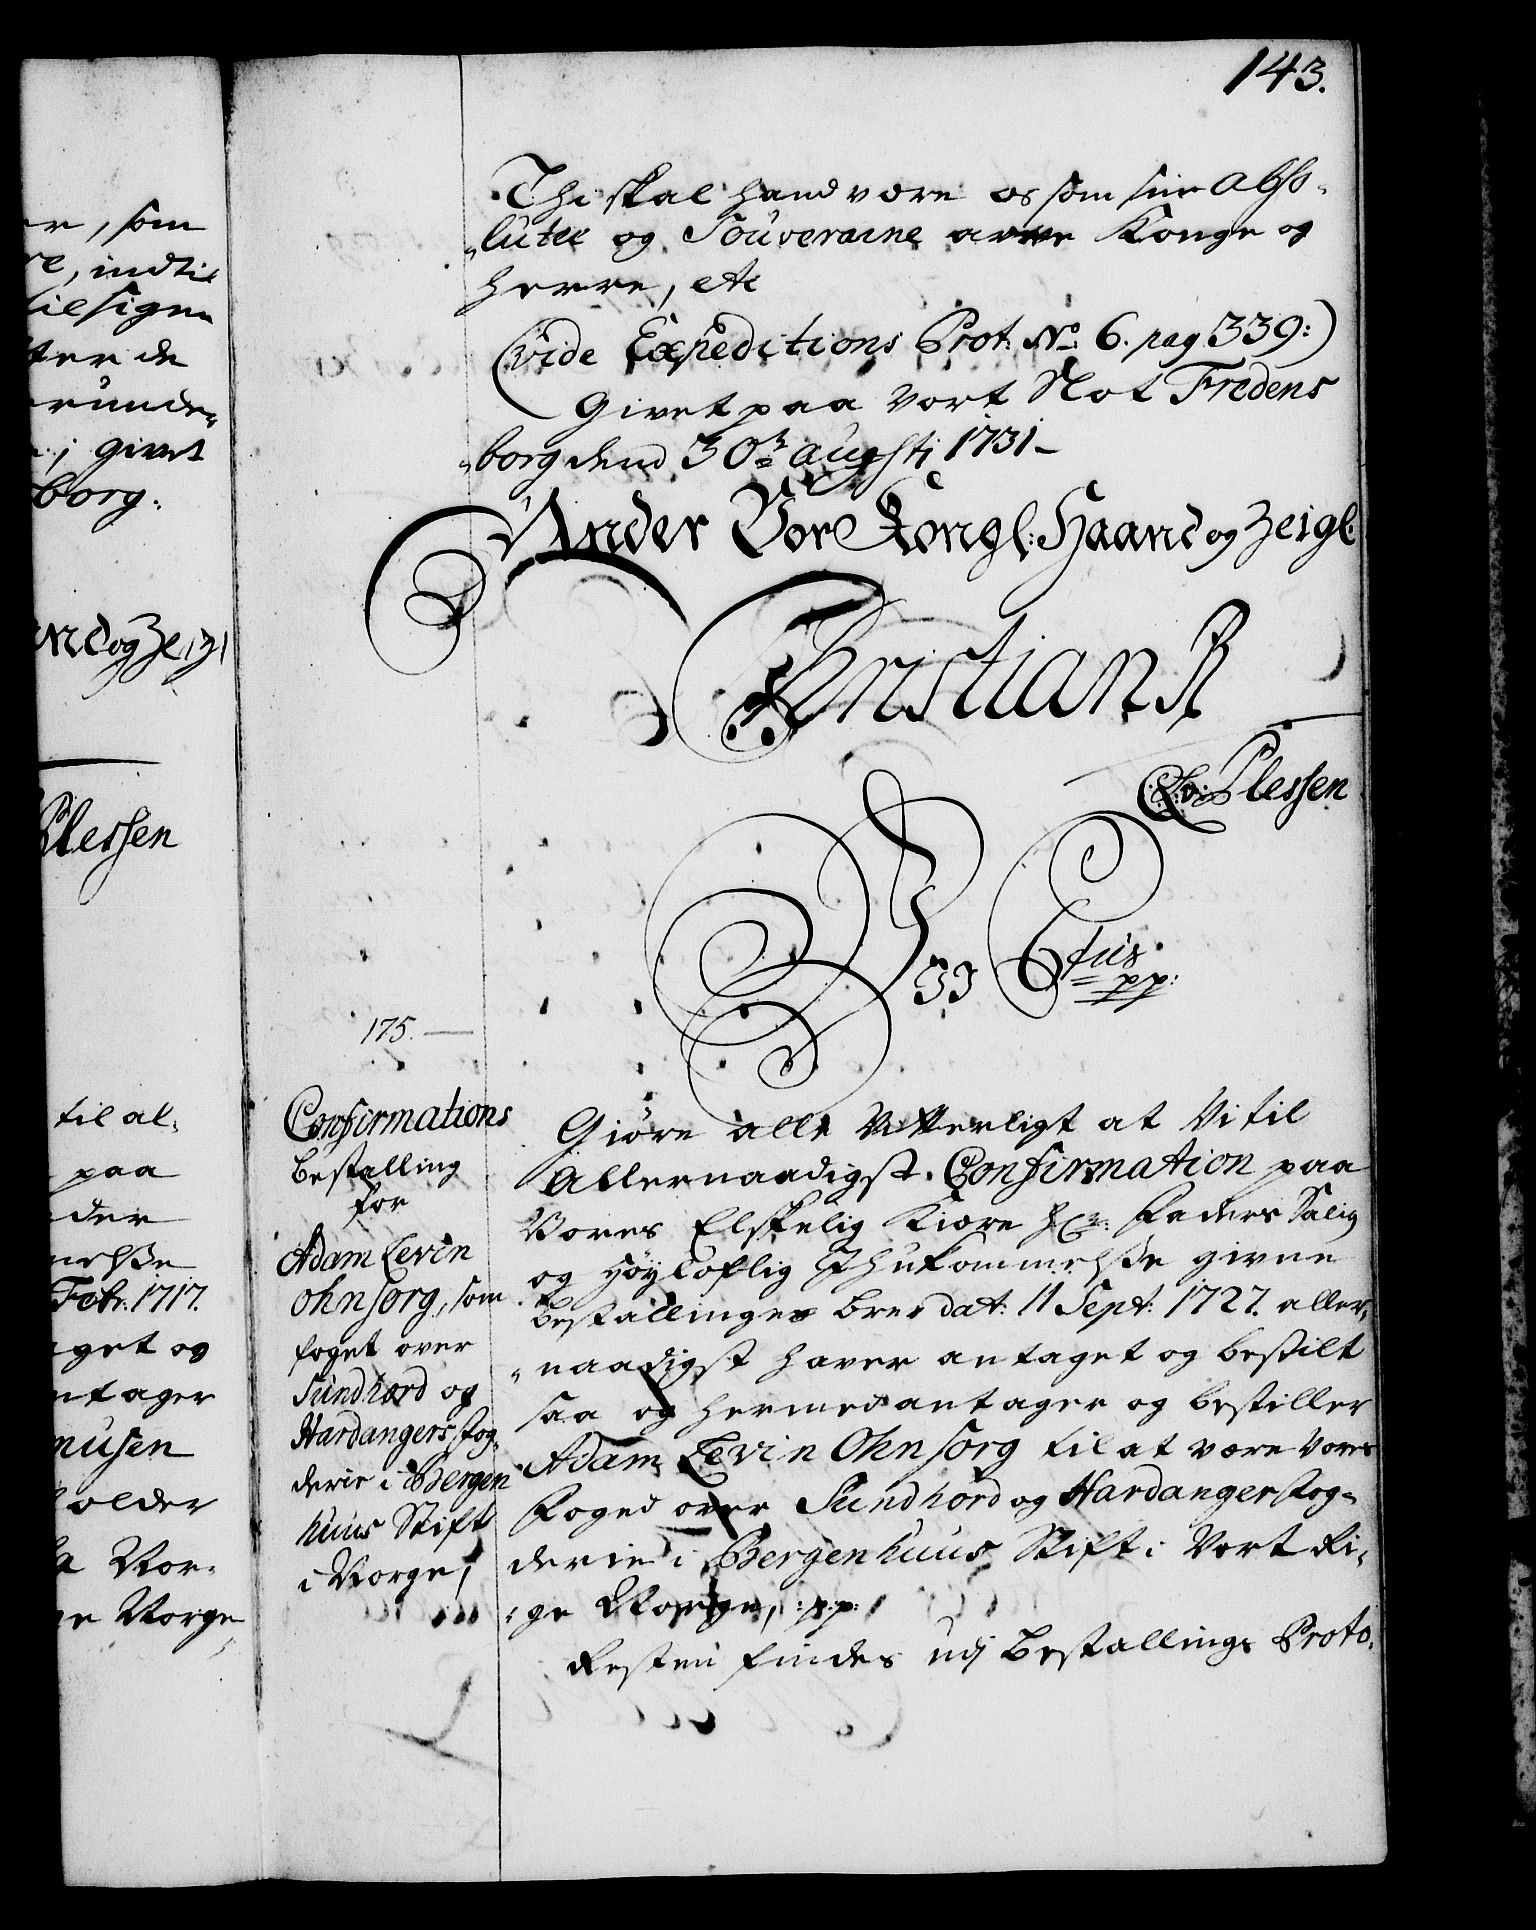 143.
Thi skal hand være os som sin Abso-
lutte og Souveraine arve Konge og
Herre, etc
(vide Expeditions Prot: No 6. pag 339:)
Givet paa Vort Slot Fredens
borg dend 30te Augstj 1731
Under Vor Kongl: Haand og Zeigl
Christian R
C A v: Plessen
Wii C 6tus
pp:
175.
Confirmations
bestalling
for
Adam Levin
Ohnsorg, som
foget over
Sundhord og
Hardangers fog-
derie i Bergen
huus Stift
i Norge,
Giöre alle Vitterligt at Vi til
Allernaadigst Confirmation paa
Vores Elskelig Kiære Hr: Faders Salig
og Höyloflig Ihukommelsse givne
bestallinger brev dat: 11 Sept: 1727. aller-
naadigst haver antaget og bestilt
saa og hermed antager og bestiller
Adam Levin Ohnsorg til at være Vores
Foged over Sundhord og Hardanger fog-
derie i Bergenhuus Stift i Vort Ri-
ge Norge, :pp:
Resten findes udj bestallings Proto-
er, som
re, indtil
tilsigen
tter de
erunder
givet
borg.
and og Zeigl
Plessen
til al-
paa
der
melsse
Febr: 1717.
get og
ntager
musen
holder
Nor-
ge Norge